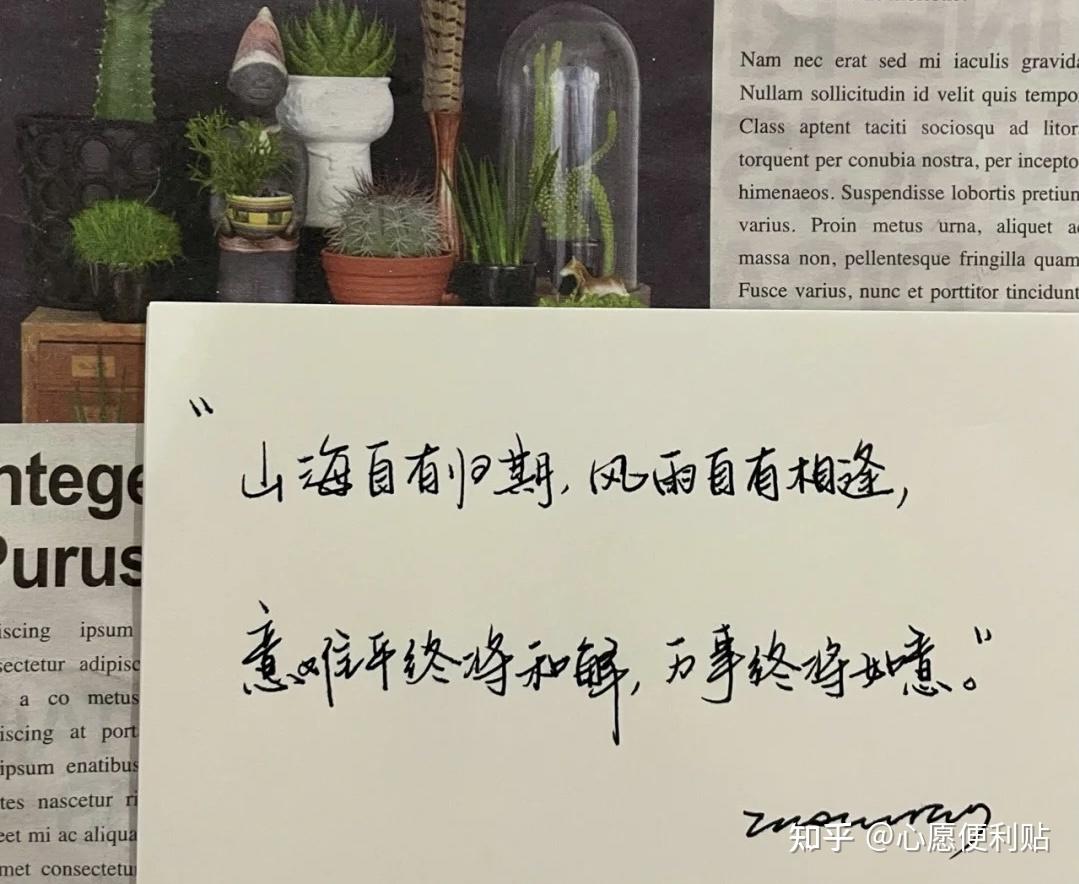 Nam nec erat sed mi iaculis gravida
Nullam sollicitudin id velit quis tempo
Class aptent taciti sociosqu ad litor
torquent per conubia nostra, per incepto
himenaeos. Suspendisse lobortis pretiun
varius. Proin metus urna, aliquet ac
massa non, pellentesque fringilla quam
Fusce varius, nunc et porttitor tincidunt
"山海自有归期,风雨自有相逢,
意难平终将和解,万事终将如意。"
ntege
Purus
iscing ipsum
sectetur adipisc
a co metus
iscing at port
ipsum enatibus
tes nascetur ri
eet mi ac aliqua
met consectetu
知乎 @心愿便利贴